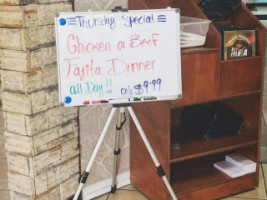 Thursday Special
Chicken or Beef
Fajita Dinner
all Day!! only $9.99